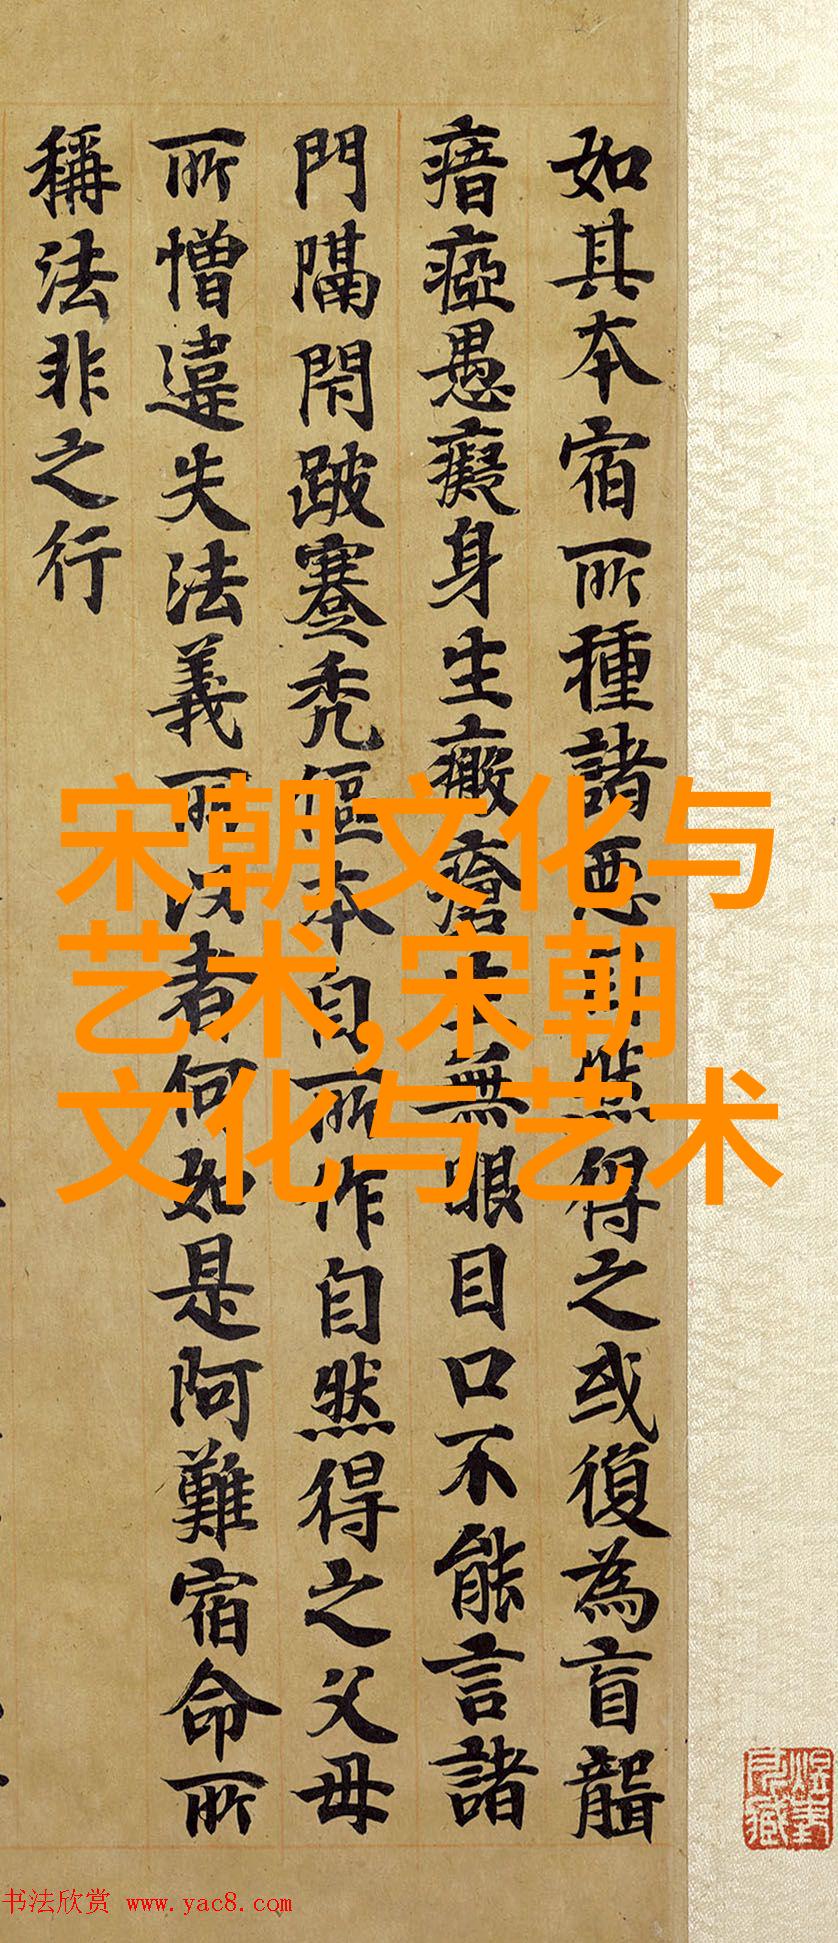 如其本宿所種諸惡自然得之或復為盲聾
瘖瘂愚癡身生瘢瘡無眼目口不能言諸
門隔閇跛蹇禿傴本自所作自然得之父母
所憎違失法義所者何如是阿難宿命所
稱法非之行
宋朝文化与
艺术,宋朝
文化与艺术
书法欣赏 www.yac8.com